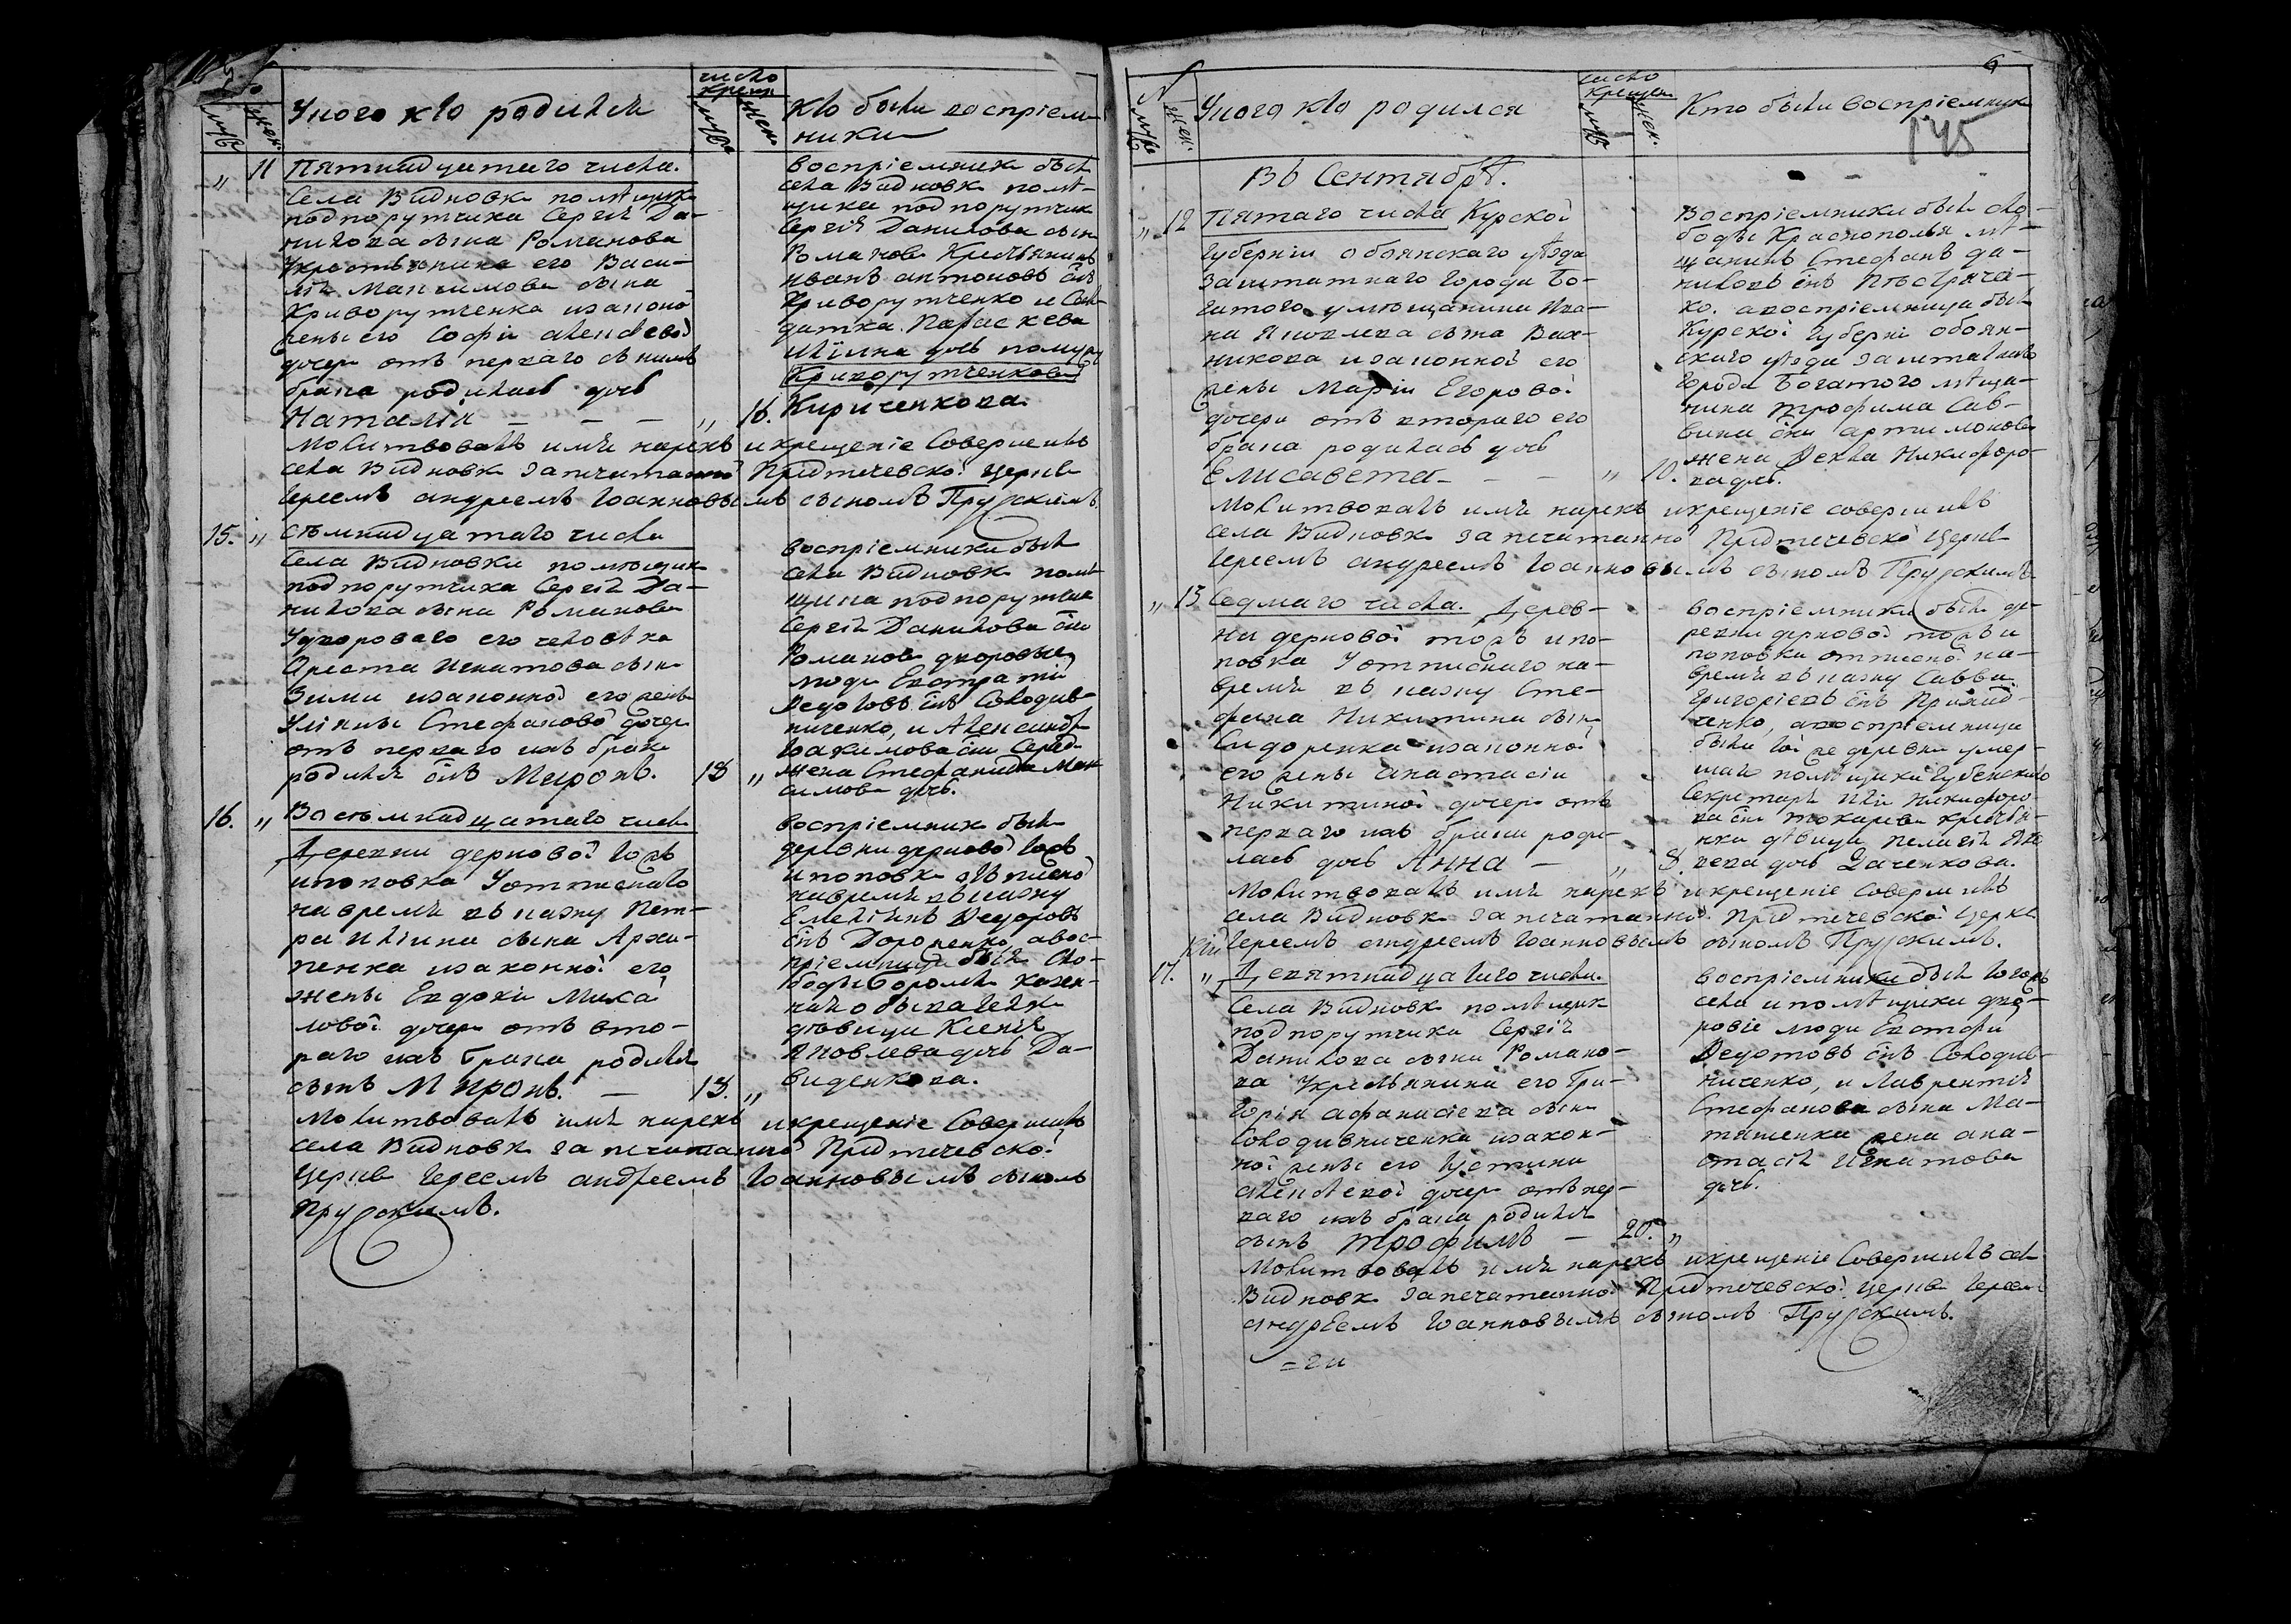 №
муж.
жен.
У кого кто родился
число крещен.
муж.
жен.
Кто были воспріем-
ники
" 11 Пятнадцатаго числа.
Села Видновки помѣщика
подпоручика Сергія Да-
нилова сына Романова
У крестьянина его Васи-
лія Максимова сына
Криворутченка и законо
жены его Софіи Алексѣевой
дочери отъ перваго съ нимъ
брака родилась дочь
Наталія — — — " 16.
воспріемники были
села Видновки помѣ-
щика подпоручика
Сергія Данилова сына
Романова Крестьянинъ
иванъ антоновъ снъ
Криворутченко и Сол-
датка Параскева
дочь
Криворутченкова
Кириченкова.
Молитвовалъ имя нарекъ и крещеніе Совершилъ
села Видновки запечатанной Предтечевской церкви
Іереемъ андреемъ Іоанновымъ сыномъ Прускимъ.
15. " Семнадцатаго числа
Села Видновки помѣщика
подпоручика Сергія Да-
нилова сына Романова
У двороваго его человѣка
Ореста Игнатова сына
Зимы и законной его жены
Улiяны Стефановой дочери
отъ перваго ихъ брака
родился снъ Миронъ. 18 "
воспріемники были
села Видновки помѣ-
щика подпоручика
Сергія Данилова сна
Романова дворовые
люди Евстратій
Ѳедотовъ снъ Солодив-
ниченко, и Александра
Іоакимова сна
жена Стефанида Мак-
симова дочь.
16. " Восѣмнадцатаго числа
Деревни дерновой тожъ
и поповка У отписнаго
на время въ казну Пет-
ра Иліина сына Архи-
пенка и законной его
жены Евдокіи Михай
ловой дочери отъ вто-
раго ихъ брака родился
сынъ Миронъ. — 18. "
воспріемники были
деревни дерновой тожъ
и поповки отписной
на время въ казну
Емельянъ Ѳедоровъ
снъ Дороненко, а вос-
пріемница была сло-
боды боромли казен-
наго обывателя
дѣвица Ксенія
Яковлева дочь Да-
виденкова.
Молитвовалъ имя нарекъ и крещеніе Совершилъ
села Видновки запечатанной Предтечевской
церкви Іереемъ андреемъ Іоанновымъ сыномъ
Прускимъ.
6
№
муж.
жен.
У кого кто родился
число крещен.
муж.
жен.
Кто были воспріемник
145
Въ Сентябрѣ.
" 12 Пятаго числа Курской
Губерніи обоянскаго уѣзда
заштатнаго города Бо-
гатого у мѣщанина Ива-
на Яковлева сына Вах-
никова и законной его
жены Маріи Егоровой
дочери отъ втораго его
брака родилась дочь
Елисавета — — — " 10.
Воспріемники были сло-
боды Краснополья мѣ-
щанинъ Стефанъ да-
ниловъ снъ
ко. а воспріемница была
Курской губерніи обоян-
скаго уѣзда заштатнаго
города Богатого мѣща-
нина трофима Сав-
вина сна артимонова
жена Ѳекла Никифоро-
ва дчь.
Молитвовалъ имя нарекъ и крещеніе совершилъ
села Видновки запечатанной Предтечевской церкви
Іереемъ андреемъ Іоанновымъ сыномъ Прускимъ
" 13 Седмаго числа. Дерев-
ни дерновой тожъ и по-
повка У отписнаго на
время въ казну Сте-
фана Никитина сына
Сидоренка и законной
его жены анастасіи
Никитиной дочери отъ
перваго ихъ брака роди-
лась дочь Анна — " 8.
воспріемники были де-
ревни дерновой тожъ и
поповки отписной на
время въ казну Савва
Григорьевъ снъ
ченко, а воспріемница
была той же деревни умер-
шаго помѣщика губенскаго
Секретаря Иліи Никифоро-
ва сна токарева крестьян-
ка дѣвица пелагія Яко
влева дочь Даченкова.
Молитвовалъ имя нарекъ и крещеніе Совершилъ
села Видновки запечатанной Предтечевской церкви
Іереемъ андреемъ Іоанновымъ сыномъ Прускимъ.
17. " Девятнадцатаго числа.
Села Видновки помѣщика
подпоручика Сергія
Данилова сына Романо-
ва У крестьянина его Гри-
горія афанасіева сына
Солодивниченка и закон-
ной жены его Іустины
алексѣевой дочери отъ пер-
ваго ихъ брака родился
сынъ трофимъ — 20. "
воспріемники были тогожъ
села и помѣщика дво-
ровіе люди Евстафій
Ѳедотовъ снъ Солодив-
ниченко, и Лаврентія
Стефанова сына Ма-
тяшенка жена ана-
стасія Игнатова
дочь.
Молитвовалъ имя нарекъ и крещеніе Совершилъ села
Видновки запечатанной Предтечевской церкви Іереемъ
андреемъ Іоанновымъ сыномъ Прускимъ.